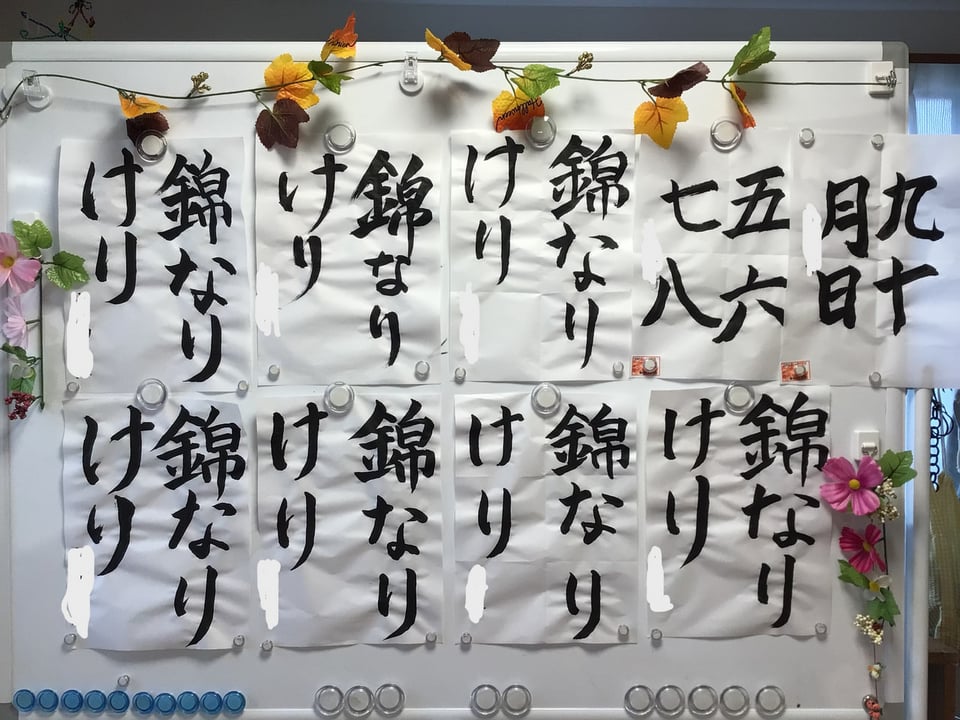 Halloween
九十
月日
五六
七八
錦なり
けり
錦なり
けり
錦なり
けり
錦なり
けり
錦なり
けり
錦なり
けり
錦なり
けり